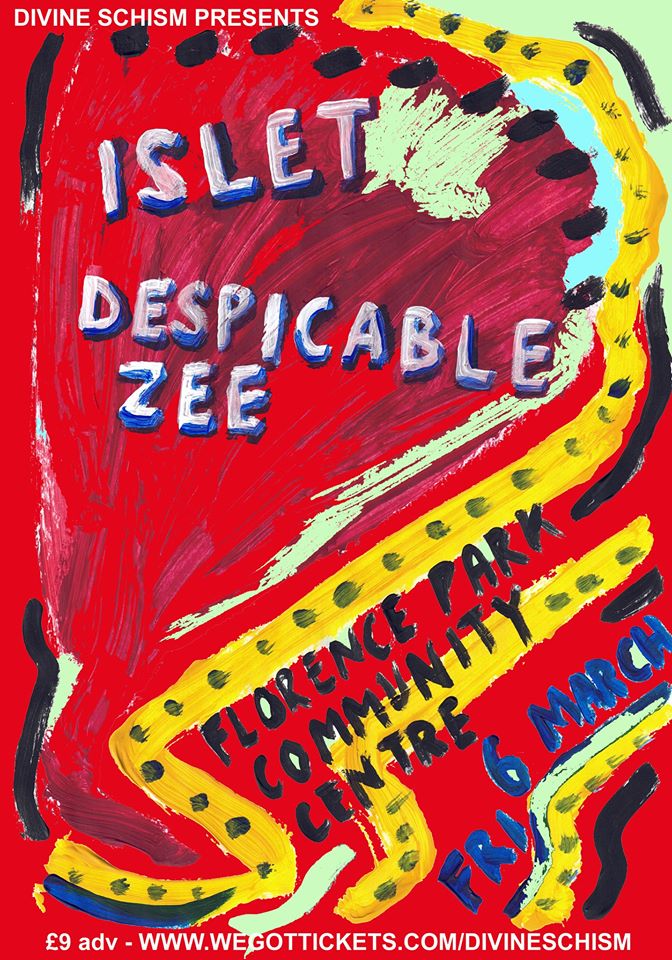 DIVINE SCHISM PRESENTS
ISLET
DESPICABLE
ZEE
FLORENCE PARK
COMMUNITY
CENTRE
FRI 6 MARCH
£9 adv - WWW.WEGOTTICKETS.COM/DIVINESCHISM